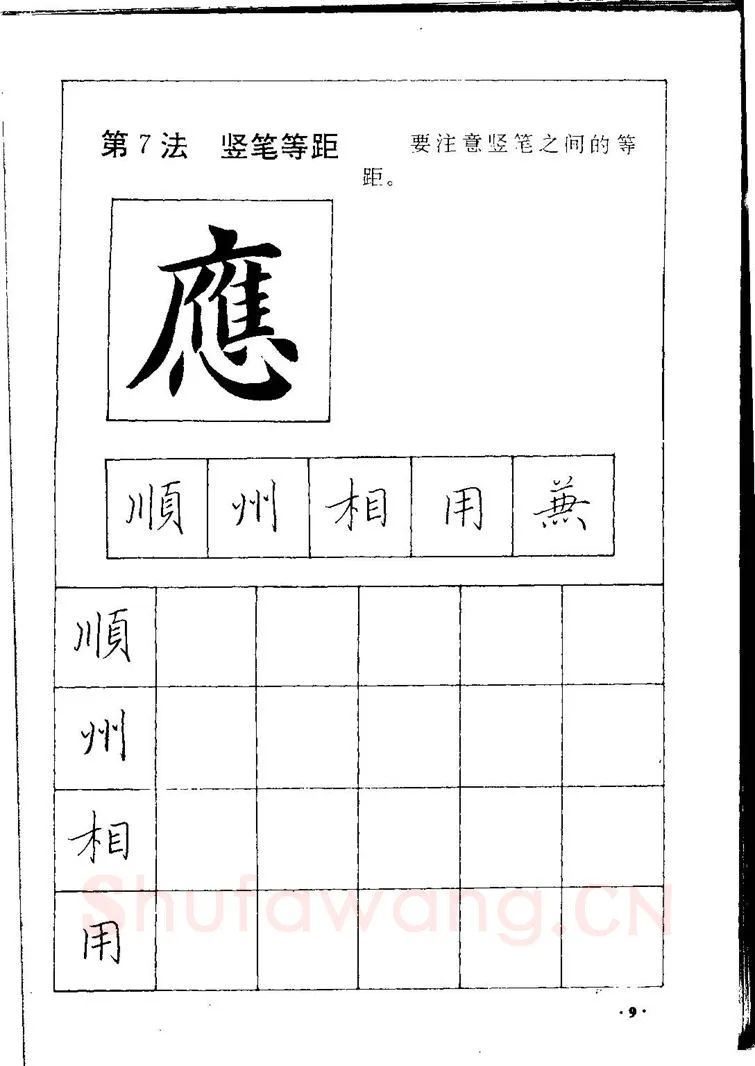 第7法 竖笔等距 要注意竖笔之间的等
距。
應
順 州 相 用 兼
順
州
相
用
Shufawang.CN
·9·